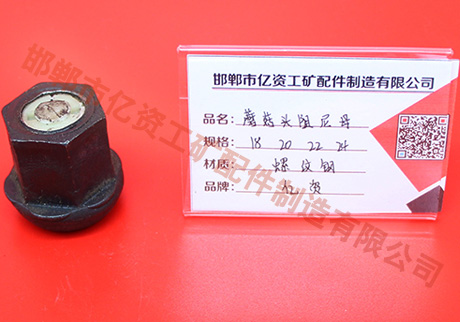 邯郸市亿资工矿配件制造有限公司
品名：蘑菇头阻尼母
规格：18 20 22 24
材质：螺纹钢
品牌：亿资
邯郸市亿资工矿配件制造有限公司